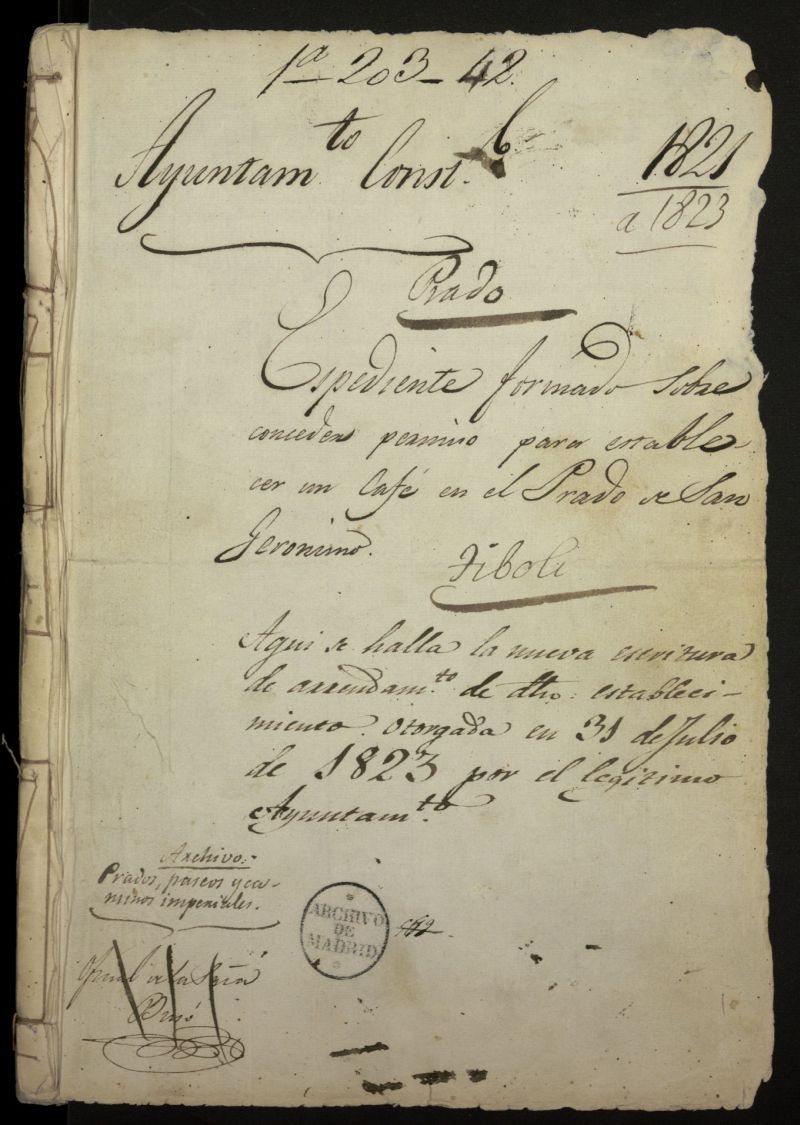 1ª 203-42.
Ayuntam.to Const.l
1821
a 1823
Prado
Espediente formado sobre
conceder permiso para estable-
cer un Café en el Prado de San
Geronimo.
Tiboli
Aqui se halla la nueva escritura
de arrendam.to de dho. estableci-
miento otorgada en 31 de Julio
de 1823 por el legitimo
Ayuntam.to
Archivo.
Prados, paseos y ca-
minos imperiales.
ARCHIVO
DE
MADRID
de la Sría